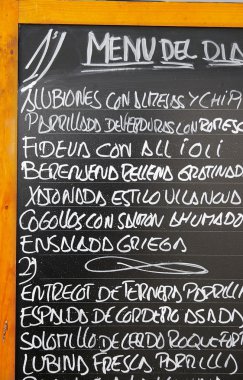 1º) MENU DEL DIA
ALUBIONES CON ALMEJAS Y CHIPI
PARRILLADA DE VERDURAS CON ROMESC
FIDEUA CON ALL I OLI
BERENJENA RELLENA GRATINADA
XATONADA ESTILO VILANOVA
COGOLLOS CON SALMON AHUMADO
ENSALADA GRIEGA
2º)
ENTRECOT DE TERNERA PARRILLA
ESPALDA DE CORDERO ASADA
SOLOMILLO DE CERDO ROQUEFORT
LUBINA FRESCA PARRILLA